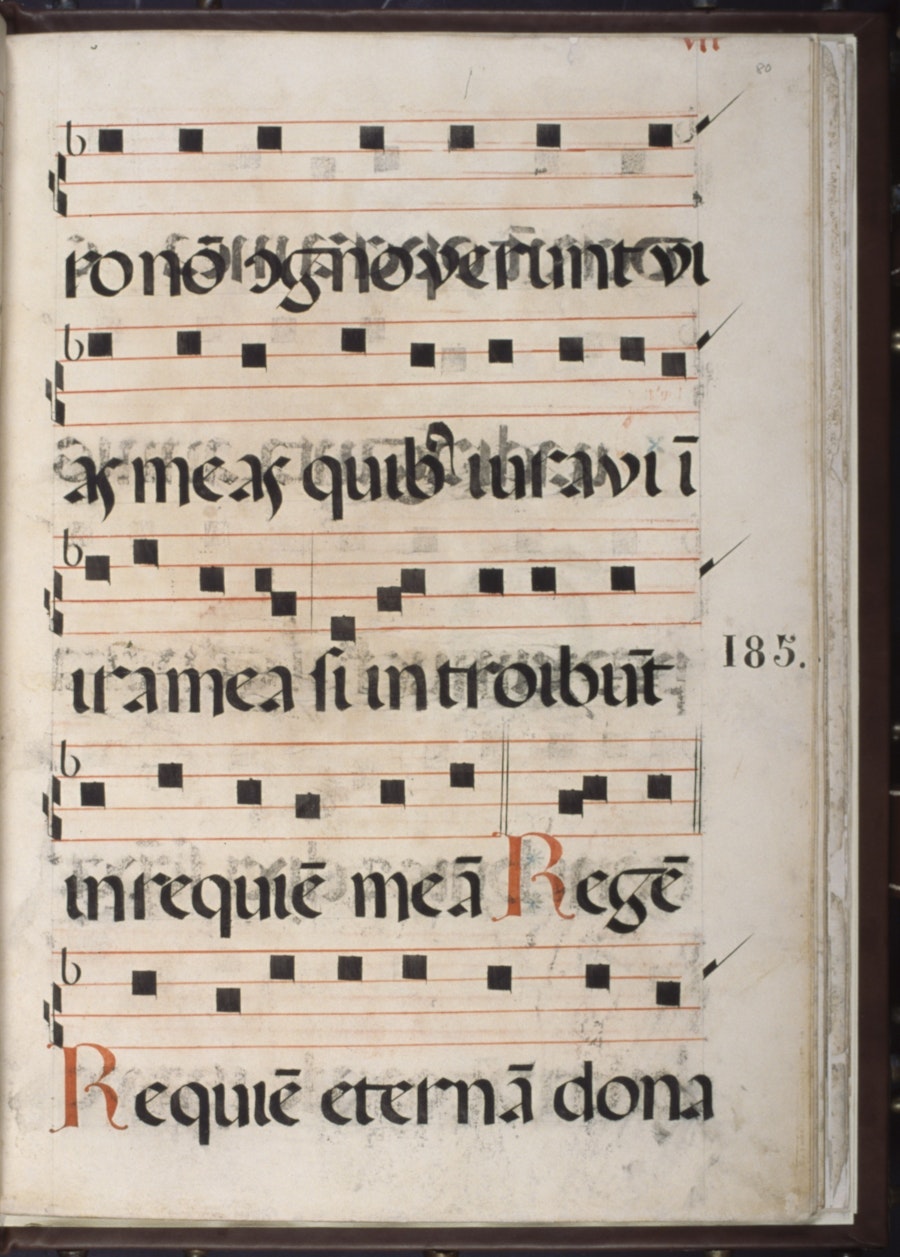 VII
80
ro nō ɔgnoverunt vi
as meas quibꝰ iuravi ī
ira mea si introibūt
185.
in requiē meā Regē
Requiē eternā dona